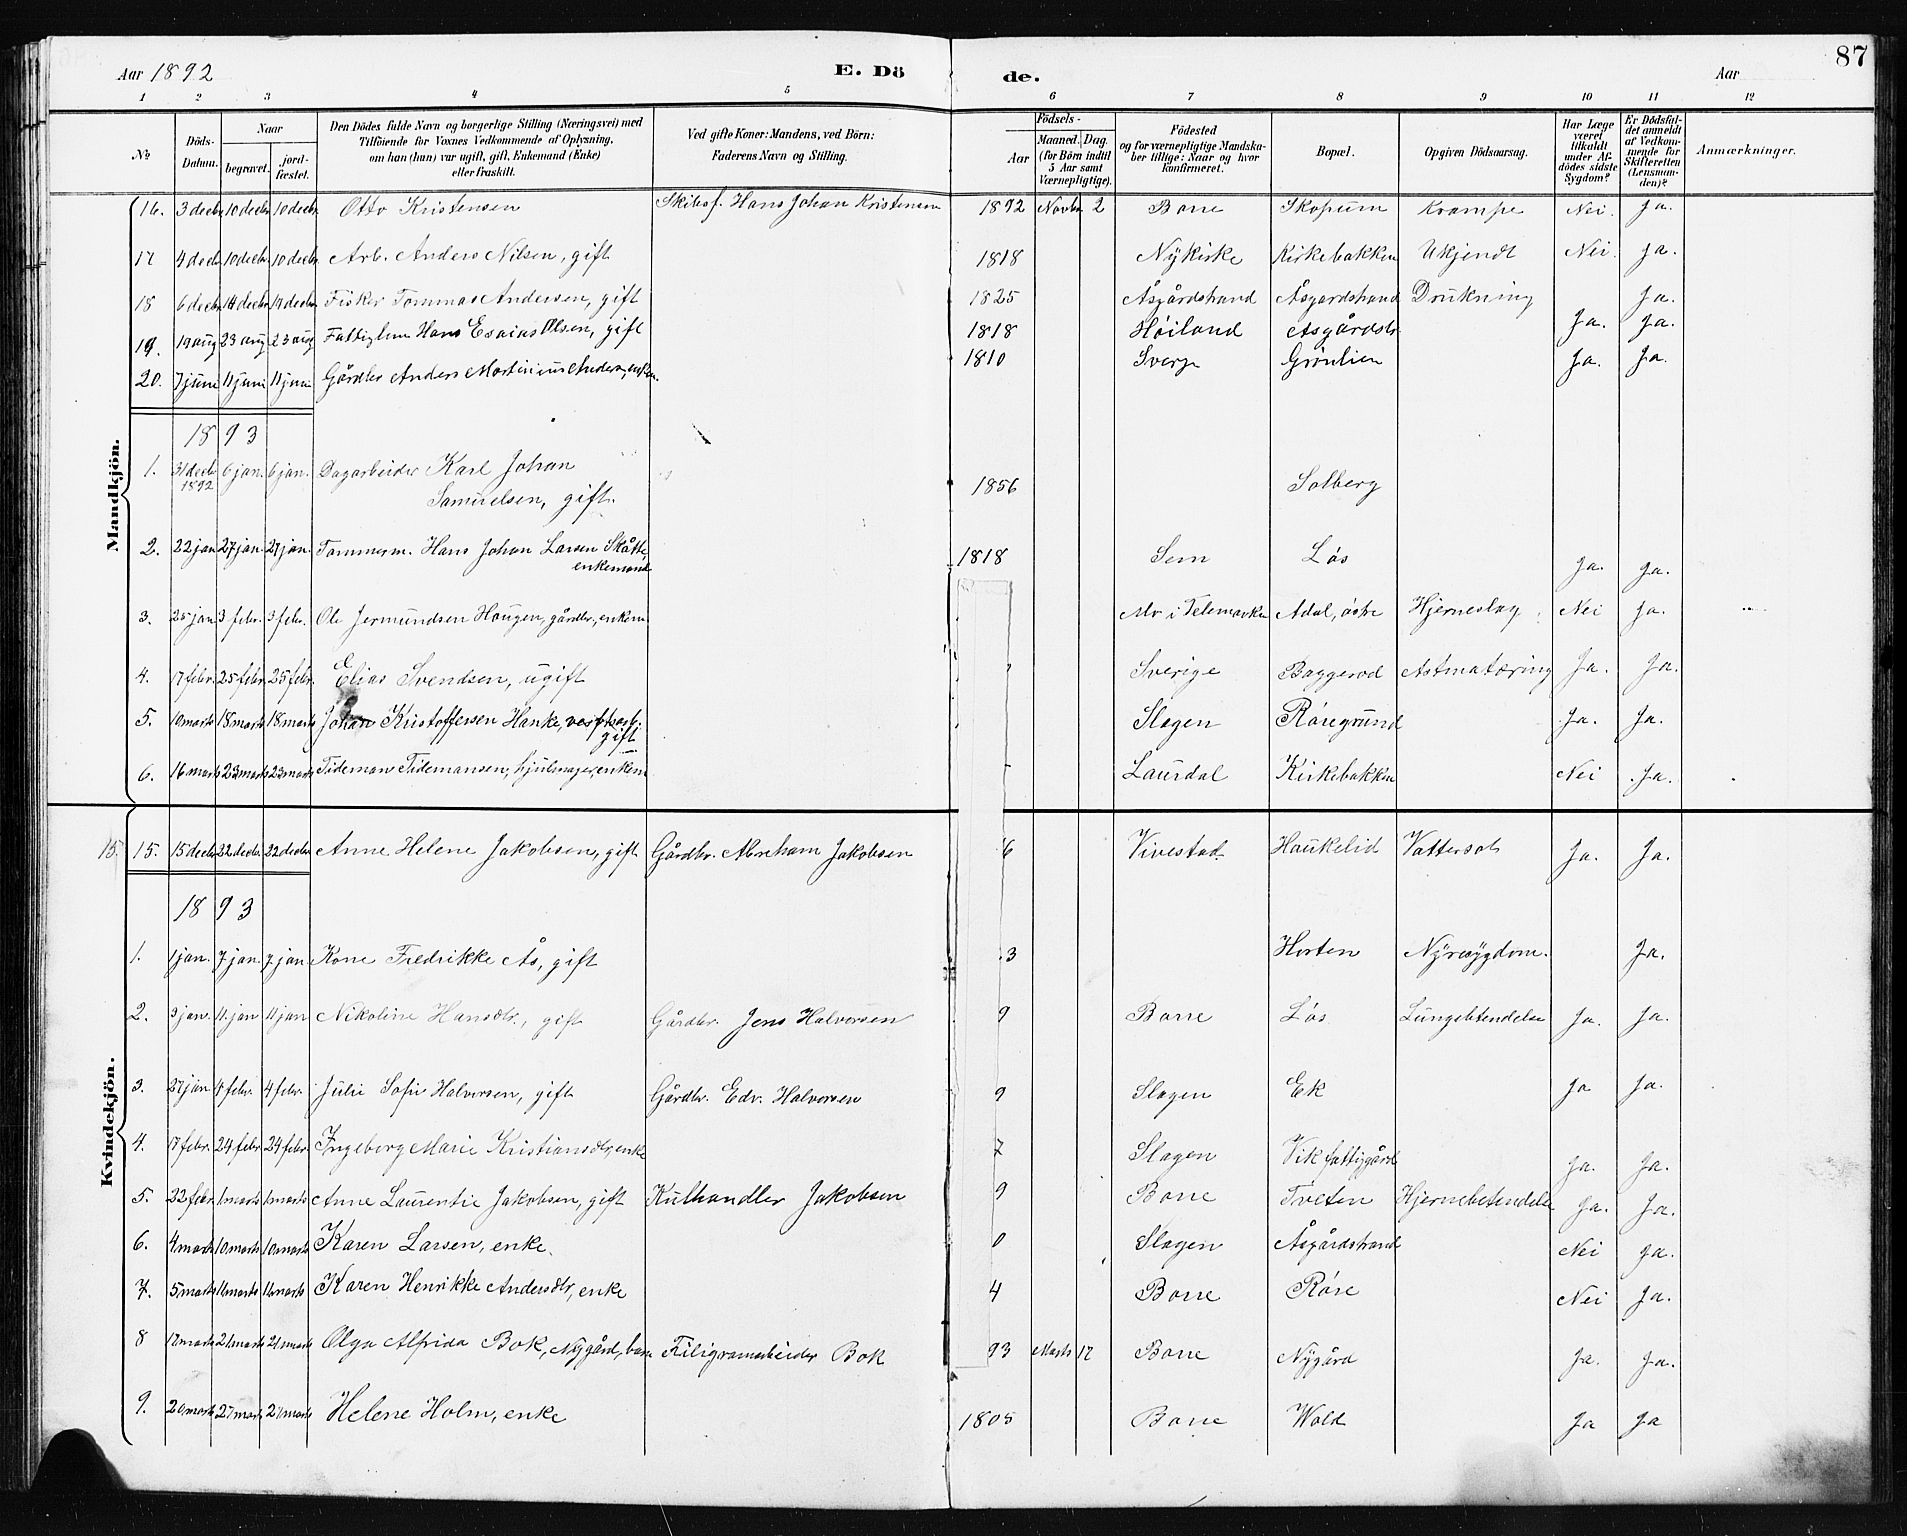 Aar 1892 E. Dö de. Aar 87
1 2 3 4 5 6 7 8 9 10 11 12
№ Döds-Datum. Naar begravet. jord-fæstet. Den Dödes fulde Navn og borgerlige Stilling (Næringsvei) med Tilföiende for Voxnes Vedkommende af Oplysning, om han (hun) var ugift, gift, Enkemand (Enke) eller fraskilt. Ved gifte Koner: Mandens, ved Börn: Faderens Navn og Stilling. Födsels- Aar Maaned. Dag. (for Börn indtil 5 Aar samt Værnepligtige). Födested og for værnepligtige Mandskaber tillige: Naar og hvor konfirmeret. Bopæl. Opgiven Dödsaarsag. Har Læge været tilkaldt under Afdödes sidste Sygdom? Er Dödsfaldet anmeldt af Vedkommende for Skifteretten (Lensmanden)? Anmærkninger.
Mandkjön.
16. 3 decbr 10 decbr 10 decbr Otto Kristensen Skibsf. Hans Johan Kristensen 1892 Novbr 2 Borre Skopum Krampe Nei. Ja.
17 4 decb 10 decbr 10 decbr Arb. Anders Nilsen, gift 1818 Nykirke Kirkebakken Ukjendt Nei. Ja.
18 6 decbr 14 decbr 14 decbr Fisker Tommas Andersen, gift 1825 Åsgårdstrand Åsgardstrand Drukning Ja.
19. 19 aug 23 aug 23 aug Fattiglem Hans Esaias Olsen, gift 1818 Höiland Asgårdstr. Ja. Ja.
20. 7 juni 11 juni 11 juni Gårdbr Anders Martinius Anders, enkem. 1810 Sverge Grönlien Ja. Ja.
1893
1. 31 decb 1892 6 jan. 6 jan. Dagarbeider Karl Johan
Samuelsen, gift. 1856 Solberg
2. 22 jan 27 jan. 27 jan. Tømmerm. Hans Johan Larsen Skåtte,
enkemand 1818 Sem Lös Ja. Ja.
3. 25 jan 3 febr. 3 febr. Ole Jermundsen Haugen, gårdbr, enkem. Mo i Telemarken Adal, östre Hjerneslag Nei Ja.
4. 17 febr. 25 febr. 25 febr. Elias Svendsen, ugift Sverige Baggerød Astmatæring Ja. Ja.
5. 10 marts 18 marts 18 marts Johan Kristoffersen Hanke,
gift Slagen Röregrund Ja. Ja.
6. 16 marts 23 marts 23 marts Tideman Tidemansen, hjulmager, enkem Laurdal Kirkebakken Nei Ja.
Kvindekjön.
15. 15. 15 decbr 22 decbr. 22 decbr. Anne Helene Jakobsen, gift Gårdbr. Abraham Jakobsen 6 Vivestad Haukelid Vattersot Ja. Ja.
1893
1. 1 jan. 7 jan. 7 jan Kone Fredrikke Ås, gift 3 Horten Nyresygdom. Ja.
2. 3 jan. 11. jan 11 jan Nikoline Hansdtr., gift Gårdbr. Jens Halvorsen 9 Borre Lös Lungebetendelse Ja. Ja.
3. 27 jan 4 febr. 4 febr. Julie Sofie Halvorsen, gift Gårdbr. Edv. Halvorsen 9 Slagen Ek Ja Ja.
4. 17 febr. 24 febr. 24 febr. Ingeborg Marie Kristiansdtr, enke 7 Slagen Vik fattiggård Ja. Ja.
5. 22 febr. 1 marts 1 marts Anne Laurentie Jakobsen, gift Kulhandler Jakobsen 9 Borre Tveten Hjernebetendelse Ja. Ja.
6. 4 marts 10 marts 10 marts Karen Larsen, enke. 0 Slagen Åsgårdstrand Nei Ja.
7. 5 marts 11 marts 11 marts Karen Henrikke Andersdtr, enke 4 Borre Röre Nei Ja.
8 17 marts 21 marts 21 marts Olga Alfrida Bok, Nygård, barn Filigramarbeider Bok 93 Marts 12 Borre Nygård Ja. Ja.
9. 20 marts 27 marts 27 marts Helene Holm, enke 1805 Borre Wold Ja Ja